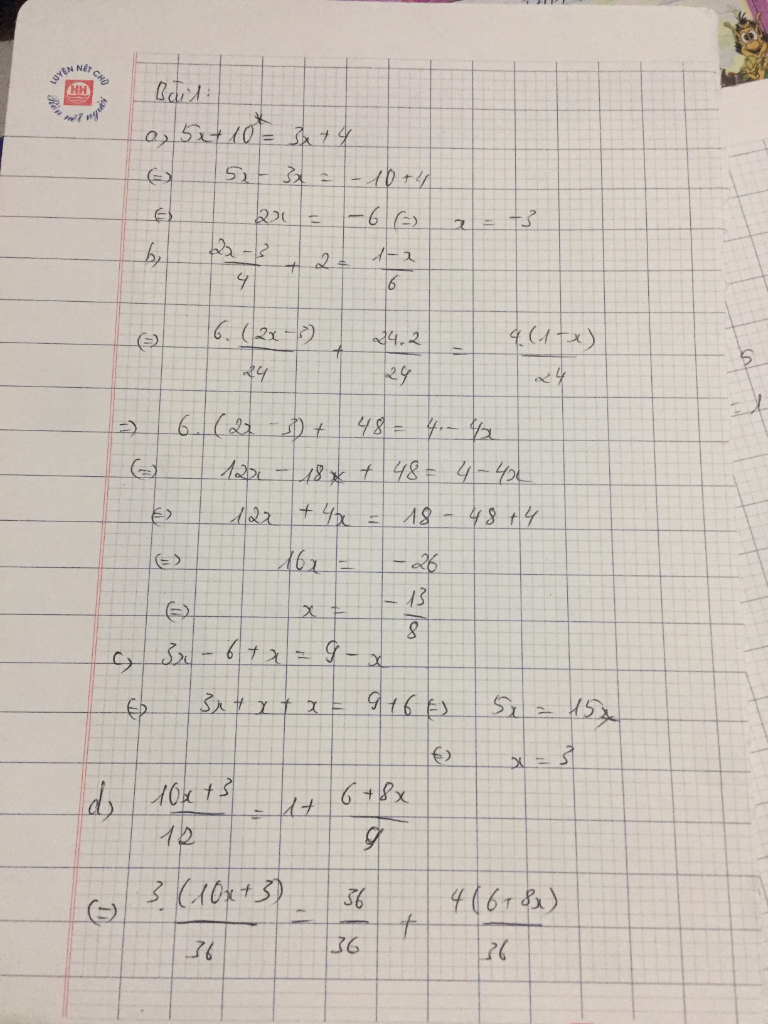 LUYỆN NÉT CHỮ
HH
Rèn nết người
Bài 1:
a, 5x+10 = 3x+4
(=) 5x - 3x = -10+4
(=) 2x = -6 (=) x = -3
b, (2x-3)/4 + 2 = (1-x)/6
(=) 6.(2x-3)/24 + 24.2/24 = 4.(1-x)/24
=) 6.(2x-3) + 48 = 4 - 4x
(=) 12x - 18 + 48 = 4 - 4x
(=) 12x + 4x = 18 - 48 + 4
(=) 16x = -26
(=) x = -13/8
c, 3x - 6 + x = 9 - x
(=) 3x + x + x = 9+6 (=) 5x = 15
(=) x = 3
d, (10x+3)/12 = 1 + (6+8x)/9
(=) 3.(10x+3)/36 = 36/36 + 4(6+8x)/36
5
= 1